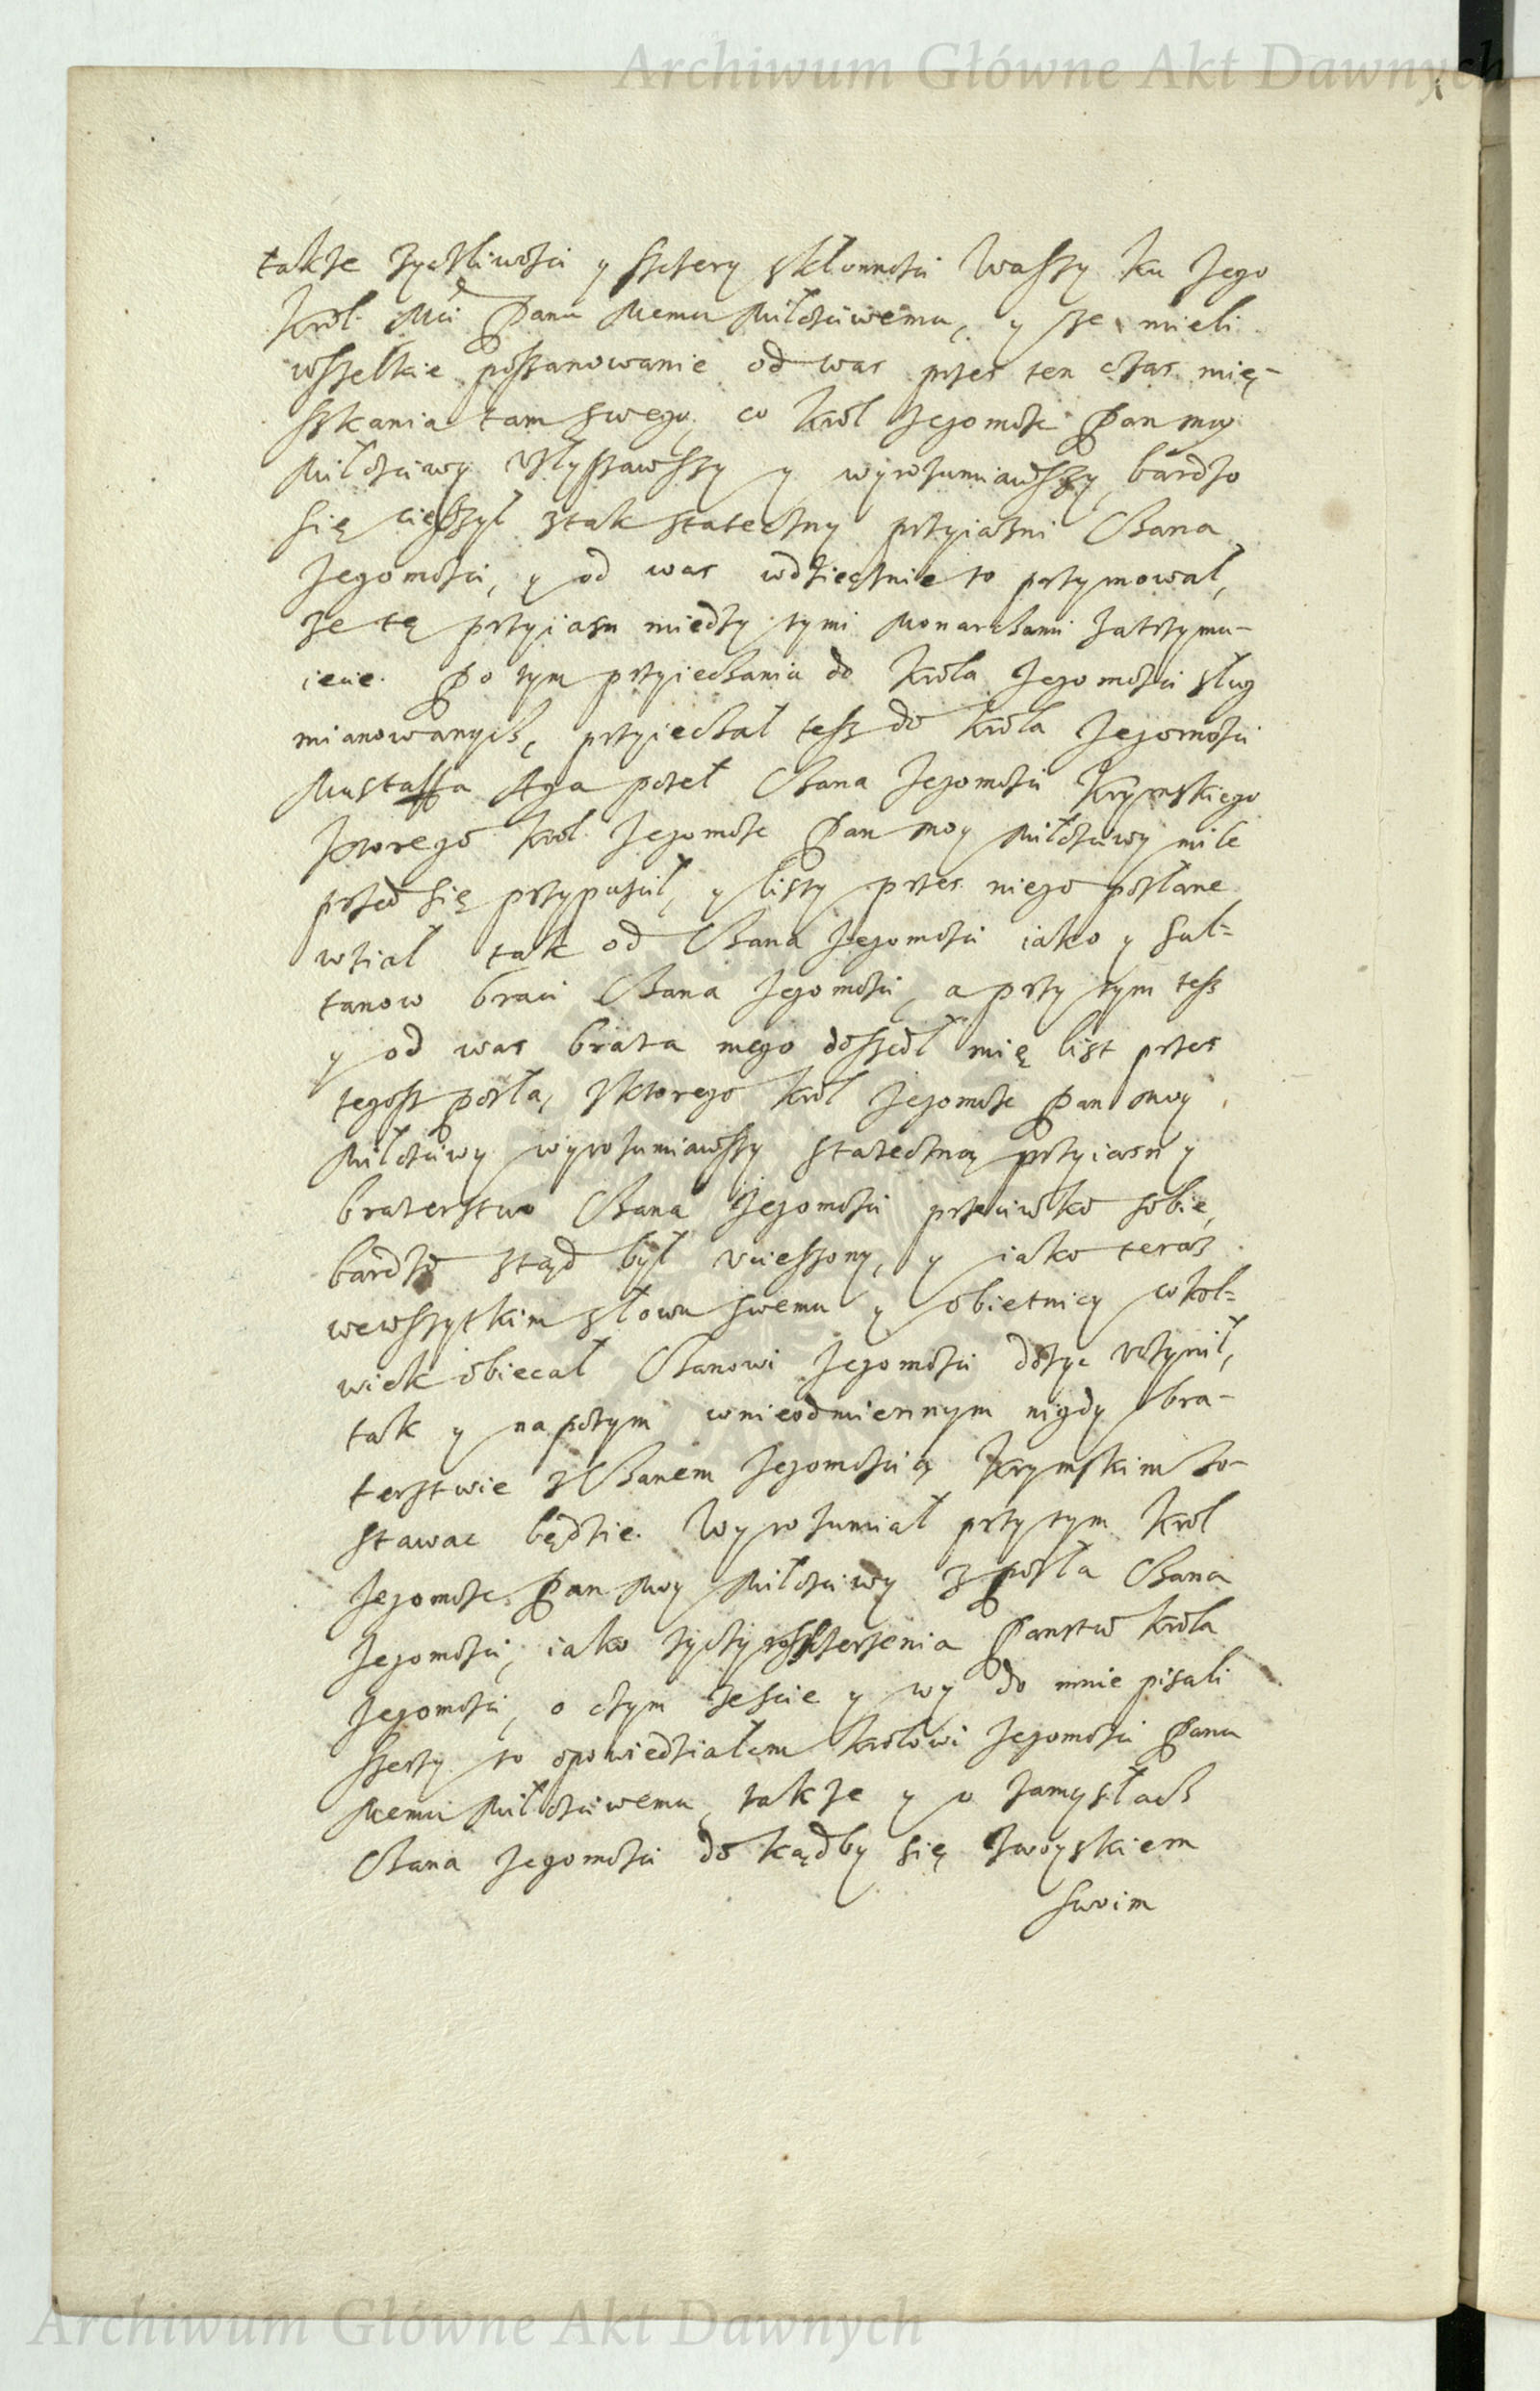 Archiwum Główne Akt Dawnych
także życzliwości y sczery skłonności waszy ku Jego
Król. Mci Panu Memu Miłościwemu, y że mieli
wszelkie poszanowanie od was przez ten czas mię-
szkania tam swego, co Król Jegomość Pan moy
Miłościwy usłyszawszy y wyrozumiawszy bardzo
się cieszył z tak stateczny przyiaźni Chana
Jegomości, y od was wdzięcznie to przymował,
że tę przyiaźn miedzy tymi Monarchami zatrzymu-
iecie. Po tym przyiechaniu do Króla Jegomości sług
mianowanych, przyiechał tesz do Króla Jegomości
Mustaffa Aga poseł Chana Jegomości Krymskiego
ktorego Król Jegomość Pan moy Miłościwy mile
przed się przypuścił, y listy przez niego posłane
wziął tak od Chana Jegomości iako y Suł=
tanow braci Chana Jegomości, a przy tym tesz
y od was brata mego doszedł mię list przez
tegosz posła, z ktorego Król Jegomość Pan moy
Miłościwy wyrozumiawszy stateczną przyiaźn y
braterstwo Chana Jegomości przeciwko sobie,
bardzo ztąd był ucieszony, y iako teraz
wewszytkim słowu swemu y obietnicy cokol=
wiek obiecał Chanowi Jegomości dosyc uczynił,
tak y napotym w nieodmiennym nigdy bra-
terstwie z Chanem Jegomością Krymskim zo-
stawac będzie. Wyrozumiał przytym Król
Jegomość Pan Moy Miłościwy z posła Chana
Jegomości, iako życzy rozszerzenia Panstw Króla
Jegomości, o czym żeście y wy do mnie pisali
to opowiedziałem Królowi Jegomości Panu
Memu Miłościwemu, także y o zamysłach
Chana Jegomości dokądby się z woyskiem
swoim
Archiwum Główne Akt Dawnych